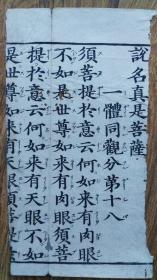 說名真是菩薩
一體同觀分第十八
須菩提於意云何如来有肉眼
不如是世尊如来有肉眼須菩
提於意云何如来有天眼不如
是世尊如来有天眼須菩提